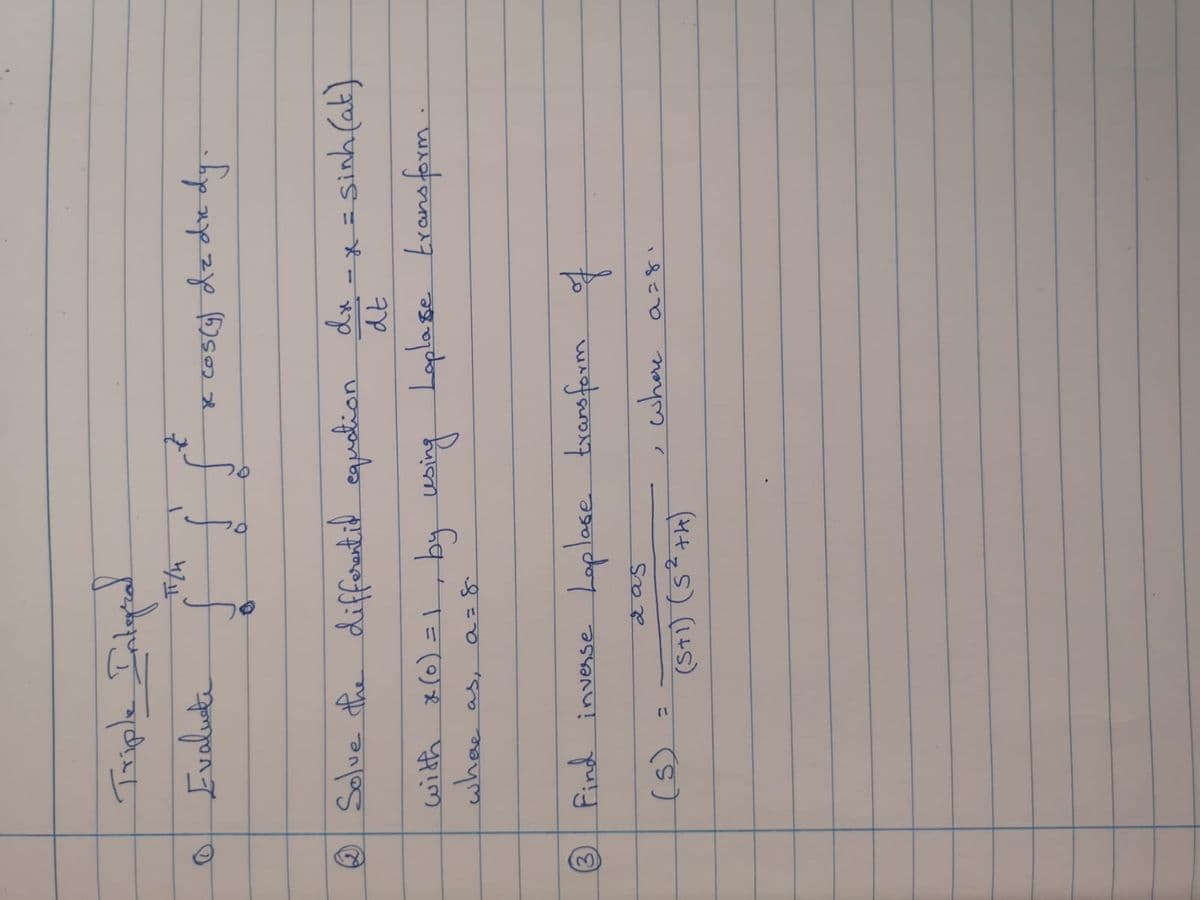 Triple Integral
① Evaluate ∫₀^π/4 ∫₀^1 ∫₀^x² x cos(y) dz dx dy.
② Solve the differential equation dx/dt - x = sinh(at)
with x(0) = 1, by using Laplase transform.
where as, a=8.
③ Find inverse Laplase transform of
(s) = 2as / (s+1)(s²+4), where a=8.